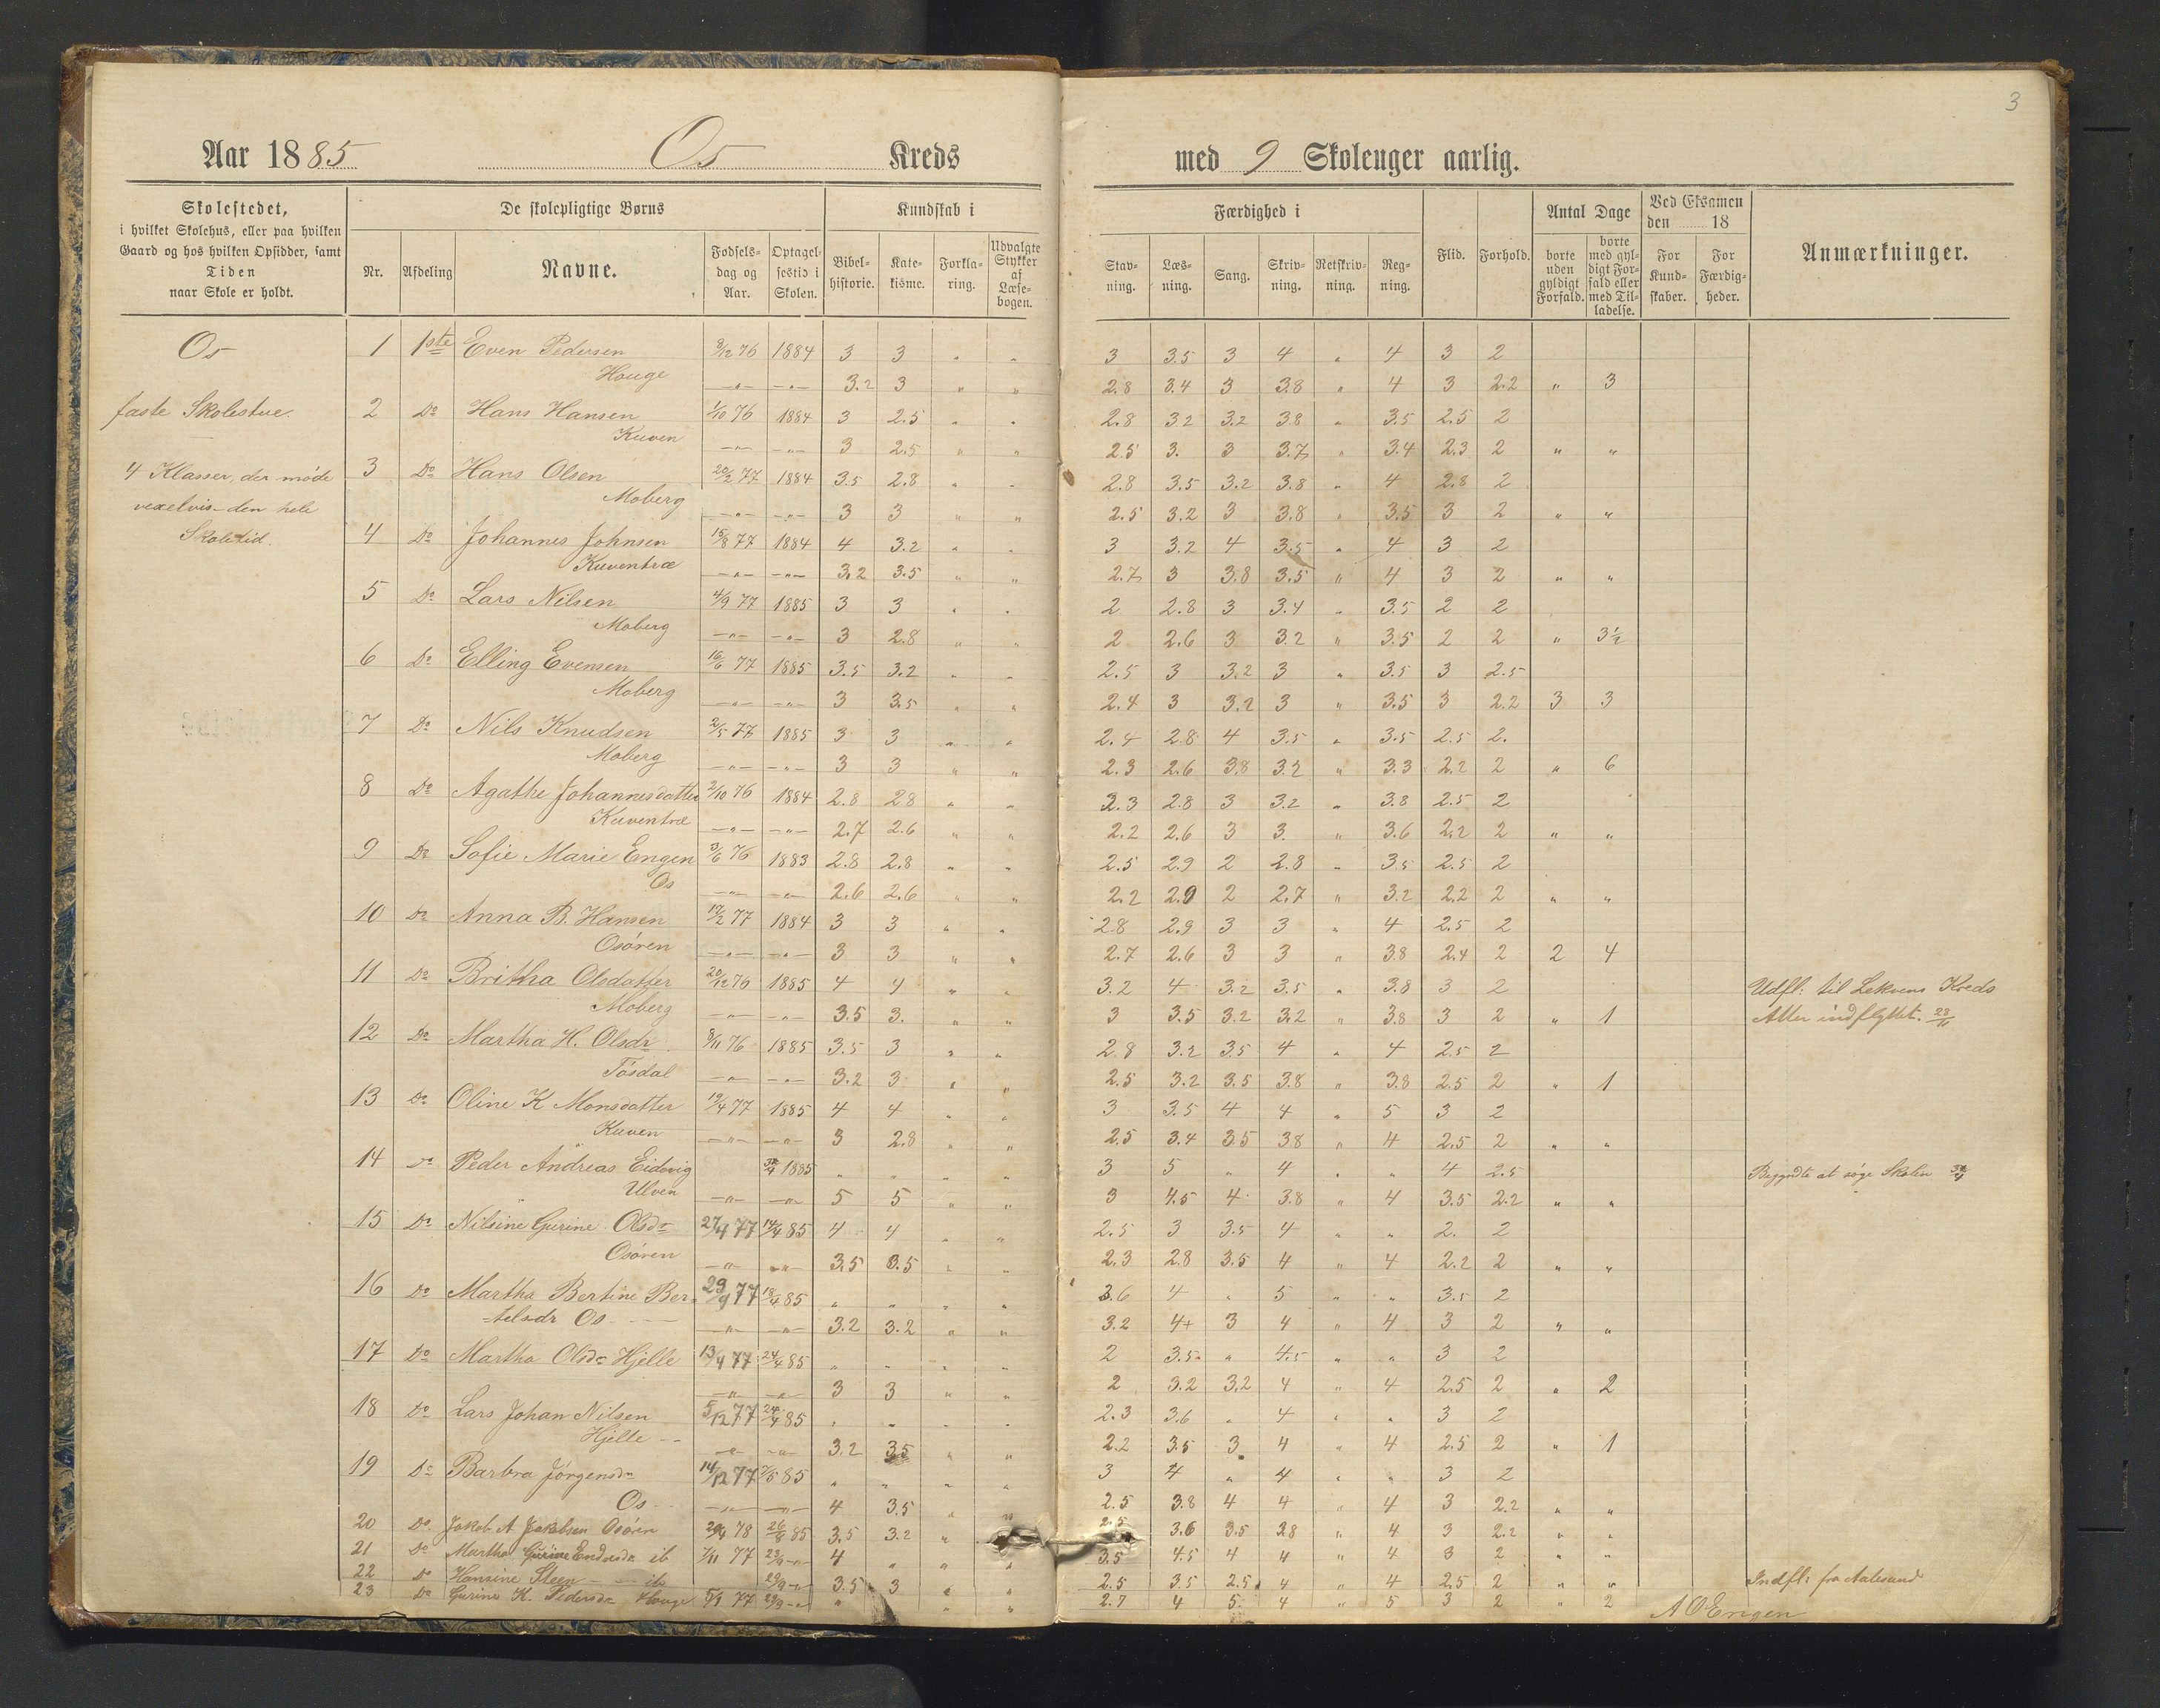 3
Aar 1885 Os Kreds med 9 Skoleuger aarlig.
Skolestedet, i hvilket Skolehus, eller paa hvilken Gaard og hos hvilken Opsidder, samt Tiden naar Skole er holdt.
De skolepligtige Børns
Nr. Afdeling Navne. Fødsels-dag og Aar. Optagel-sestid i Skolen.
Kundskab i
Bibel-historie. Kate-kisme. Forkla-ring. Udvalgte Stykker af Læse-bogen.
Færdighed i
Stav-ning. Læs-ning. Sang. Skriv-ning. Retskriv-ning. Reg-ning.
Flid. Forhold.
Antal Dage
borte uden gyldigt Forfald. borte med gyl-digt For-fald eller med Til-ladelse.
Ved Eksamen den 18
For Kund-skaber. For Færdig-heder.
Anmærkninger.
Os
faste Skolestue.
4 Klasser, der møde
vexelvis den hele
Skoletid.
1 1ste Even Pedersen 8/12 76 1884 3 3 " " 3 3.5 3 4 " 4 3 2
Houge —"— —"— 3.2 3 " " 2.8 3.4 3 3.8 " 4 3 2.2 " 3
2 Do Hans Hansen 1/10 76 1884 3 2.5 " " 2.8 3.2 3.2 3.8 3.5 2.5 2
Kuven —"— —"— 3 2.5 " " 2.5 3. 3 3.7 " 3.4 2.3 2 " "
3 Do Hans Olsen 20/2 77 1884 3.5 2.8 " " 2.8 3.5 3.2 3.8 " 4 2.8 2
Moberg —"— —"— 3 3 " " 2.5 3.2 3 3.8 " 3.5 3 2 " "
4 Do Johannes Johnsen 15/8 77 1884 4 3.2 " " 3 3.2 4 3.5 " 4 3 2
Kuventræ —"— —"— 3.2 3.5 " " 2.7 3 3.8 3.5 " 4 3 2 " "
5 Do Lars Nilsen 4/9 77 1885 3 3 " " 2 2.8 3 3.4 " 3.5 2 2
Moberg —"— —"— 3 2.8 " " 2 2.6 3 3.2 " 3.5 2 2 " 3½
6 Do Elling Evensen 16/6 77 1885 3.5 3.2 " " 2.5 3 3.2 3 " 3.5 3 2.5
Moberg —"— —"— 3 3.5 " " 2.4 3 3.2 3 " 3.5 3 2.2 3 3
7 Do Nils Knudsen 2/5 77 1885 3 3 " " 2.4 2.8 4 3.5 " 3.5 2.5 2.
Moberg —"— —"— 3 3 " " 2.3 2.6 3.8 3.2 " 3.3 2.2 2 " 6
8 Do Agathe Johannesdatter 2/10 76 1884 2.8 2.8 " " 2.3 2.8 3 3.2 " 3.8 2.5 2
Kuventræ —"— —"— 2.7 2.6 " " 2.2 2.6 3 3. " 3.6 2.2 2 " "
9 Do Sofie Marie Engen 3/6 76 1883 2.8 2.8 " " 2.5 2.9 2 2.8 " 3.5 2.5 2
Os —"— —"— 2.6 2.6 " " 2.2 2.9 2 2.7 " 3.2 2.2 2 " "
10 Do Anna B. Hansen 17/2 77 1884 3 3 " " 2.8 2.9 3 3 " 4 2.5 2
Osøren —"— —"— 3 3 " " 2.7 2.6 3 3 " 3.8 2.4 2 2 4
11 Do Britha Olsdatter 20/12 76 1885 4 4 " " 3.2 4 3.2 3.5 " 3.8 3 2 Udfl. til Lekvens Kreds
Moberg —"— —"— 3.5 3. " " 3 3.5 3.2 3.2 " 3.8 3 2 " 1 Atter indflyttet. 23/11
12 Do Martha H. Olsdr 8/11 76 1885 3.5 3 " " 2.8 3.2 3.5 4 " 4 2.5 2
Tøsdal —"— —"— 3.2 3 " " 2.5 3.2 3.5 3.8 " 3.8 2.5 2 " 1
13 Do Oline K Monsdatter 19/4 77 1885 4 4 " " 3 3.5 4 4 " 5 3 2
Kuven —"— —"— 3 2.8 " " 2.5 3.4 3.5 3.8 " 4 2.5 2 " "
14 Do Peder Andreas Eidsvig 1885 " " " " 3 5 " 4 " " 4 2.5 Begyndte at søge Skolen
Ulven —"— —"— 5 5 " " 3 4.5 4 3.8 " 4 3.5 2.2 " "
15 Do Nilsine Gurine Olsdr 27/4 77 14/4 85 4 4 " " 2.5 3 3.5 4 " " 2. 2
Osøren —"— —"— 3.5 3.5 " " 2.3 2.8 3.5 4 " 4 2.2 2 " "
16 Do Martha Bertine Ber- 29/9 77 18/4 85 " " " " 3.6 4 " 5 " " 3.5 2
telsdr Os —"— —"— 3.2 3.2 " " 3.2 4+ 3 4 " 4 3 2 " "
17 Do Martha Olsdr Hjelle 13/4 77 24/4 85 " " " " 2 3.5 " 4.5 " " 3 2
—"— —"— 3 3 " " 2 3.2 3.2 4 " 4 2.5 2 " 2
18 Do Lars Johan Nilsen 5/12 77 24/4 85 " " " " 2.3 3.6 " 4 " " 3 2
Hjelle —"— —"— 3.2 3.5 " " 2.2 3.5 3 4 " 4 2.5 2 " 1
19 Do Barbra Jørgensdr 14/12 77 7/5 85 " " " " 3 4 " 4 " " 3 2
Os —"— —"— 4 3.5 " " 2.5 3.8 4 4 " 4 3 2.2 " "
20 Do Jakob A. Jakobsen Osøren 78 85 3.5 3.2 " " 2.5 3.6 3.5 3.8 " 4 3 2.2 " "
21 Do Martha Gurine Endresdr ib 7/11 77 23/9 -"- 4 " " " 3.5 4.5 4 4 " 4 3 2 " "
22 Do Hansine Steen ib 29/9 -"- 3.5 3 " " 2.5 3.5 2.5 4 " 4 2.5 2 " " Indfl. fra Aalesund
23 Do Gurine K. Pedersdr Houge 77 29/9 -"- " " " 2.7 4 5. 4 " 5 3 2 " 2
A O Engen